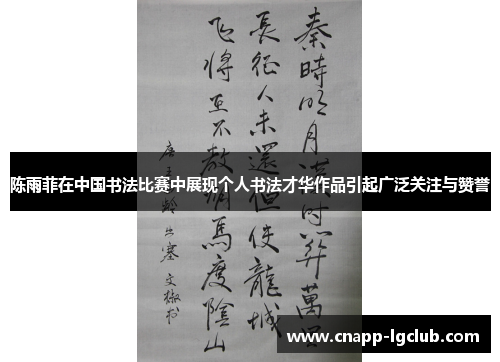 秦時明月
長征人未還但使龍城
飞將在不教胡馬度陰山
唐王昌龄出塞
陈雨菲在中国书法比赛中展现个人书法才华作品引起广泛关注与赞誉
www.cnapp-lgclub.com